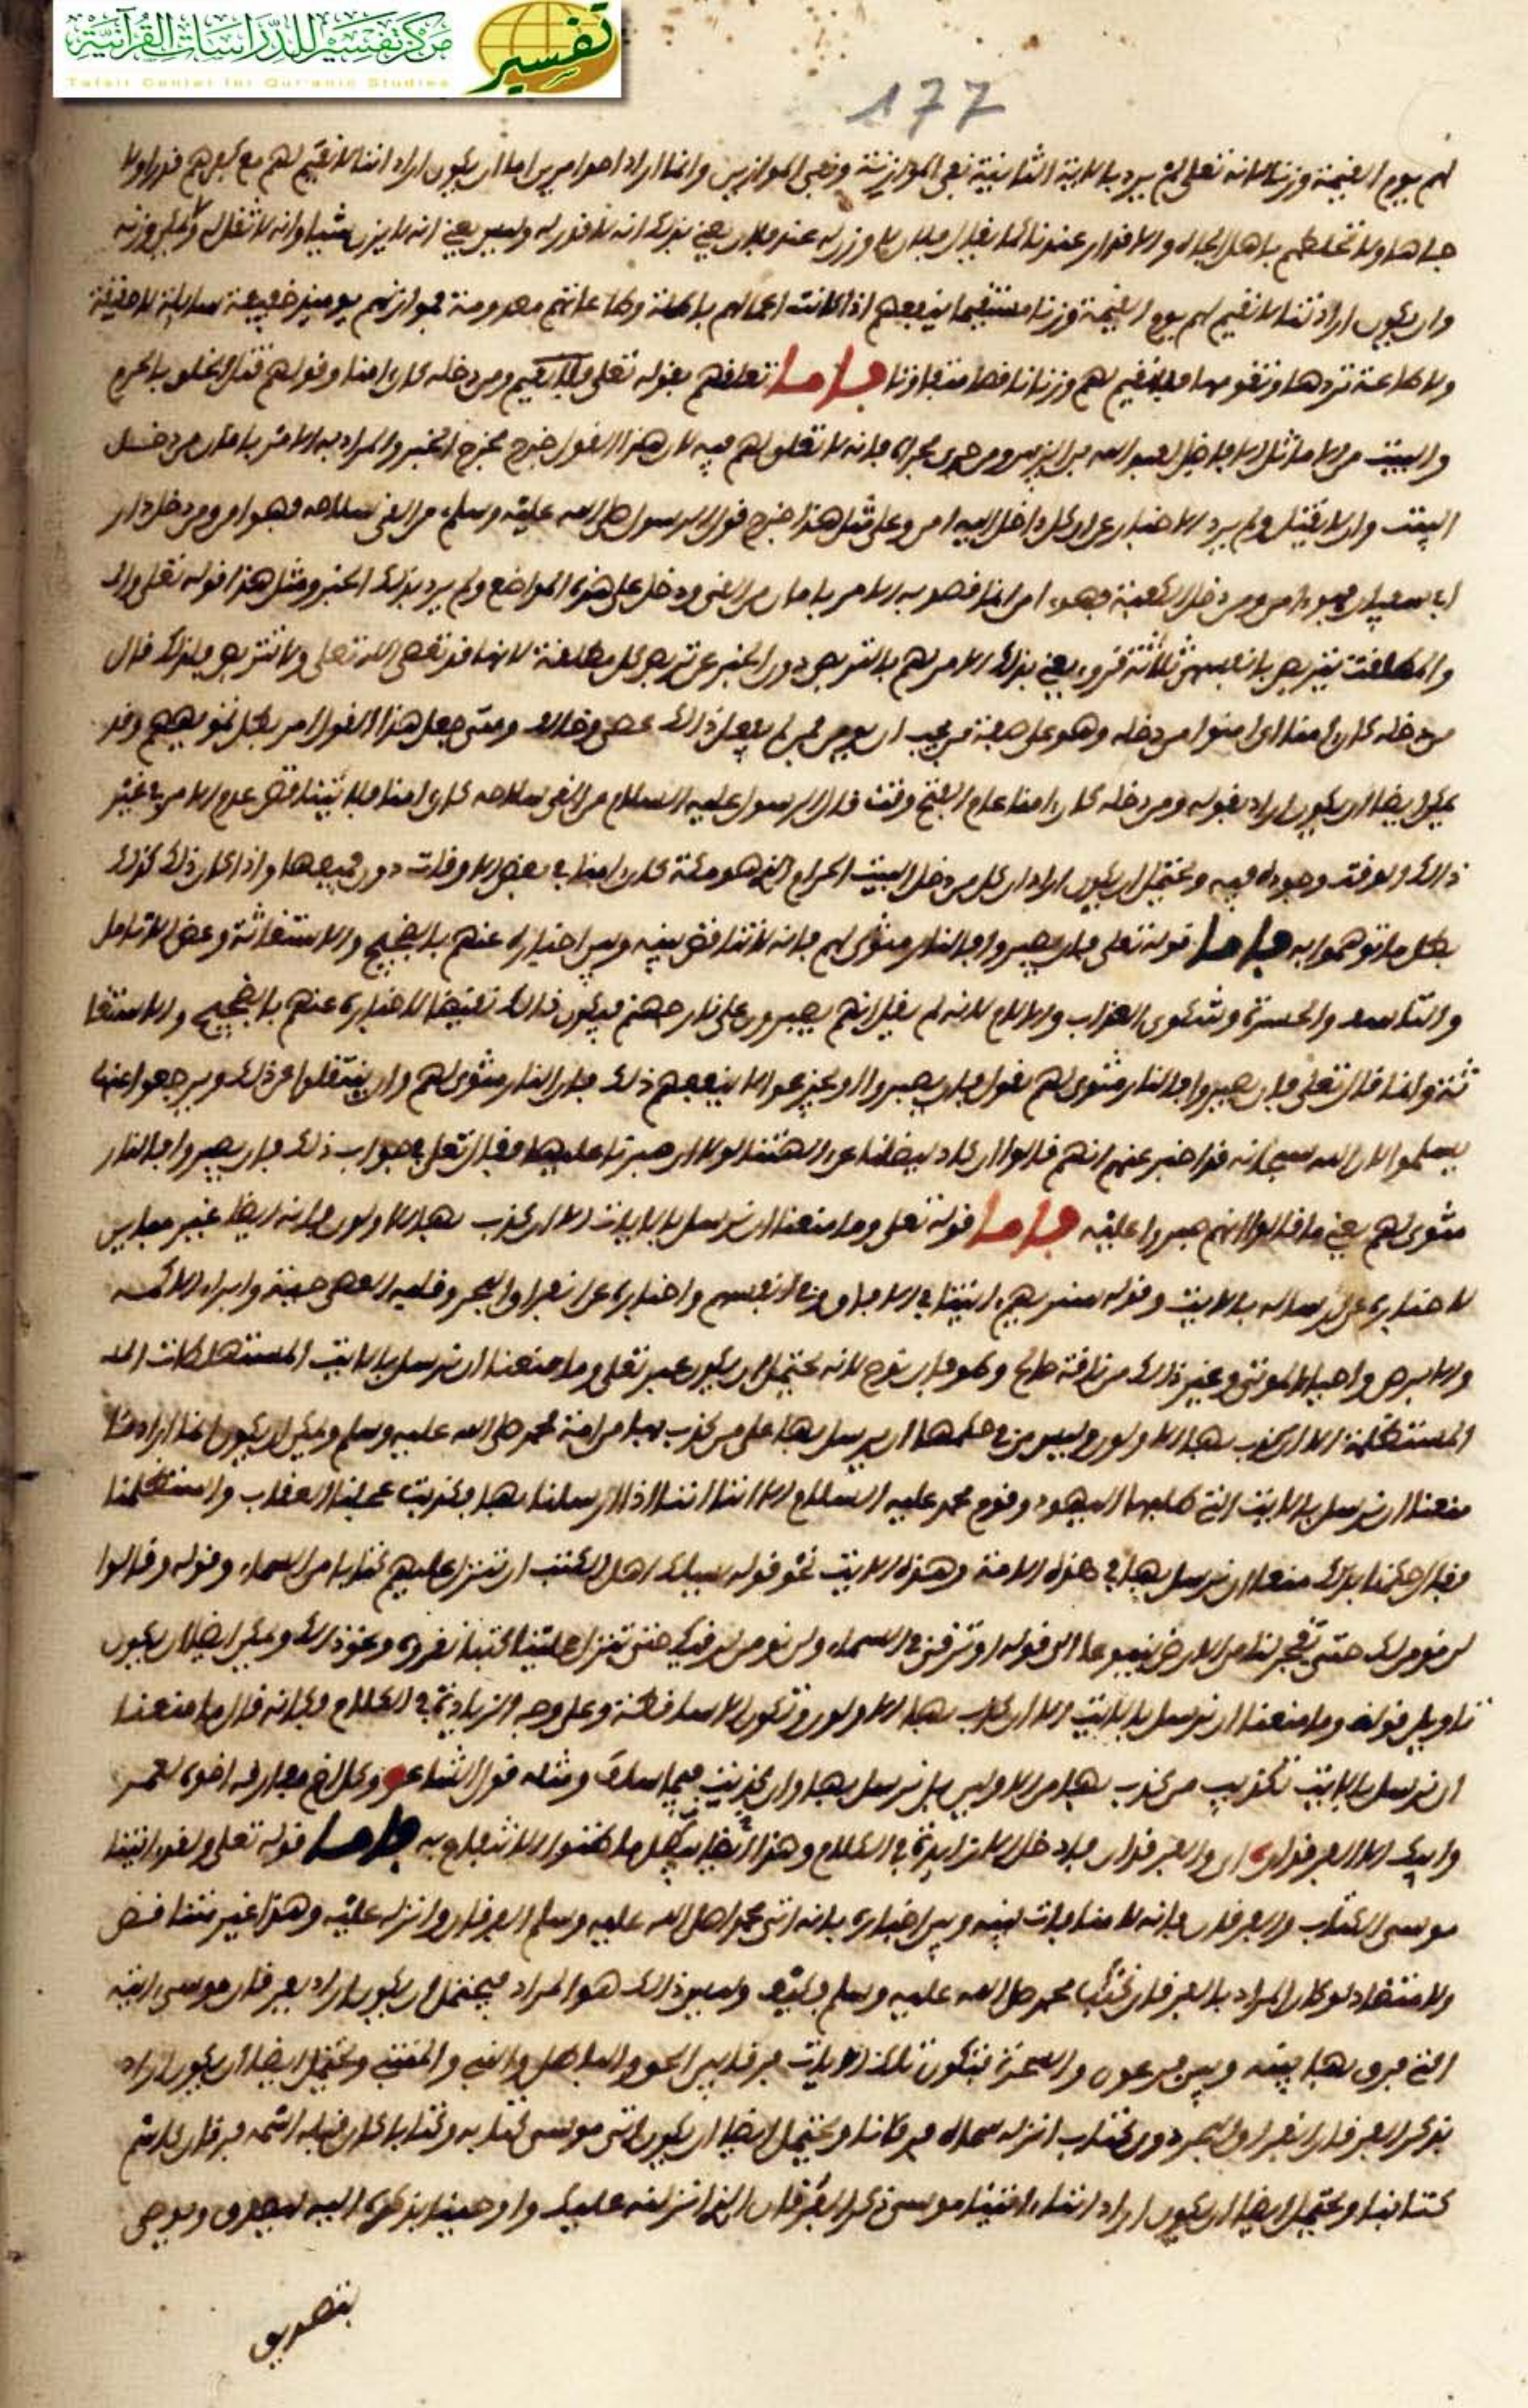 مركز تفسير للدراسات القرآنية
Tafsir Center for Qur'anic Studies
تفسير
177
لهم يوم القيمة وزنا لانه تعلى لم يرد بالاية الثانية نفي الموازنة ونصب الموازين وانما اراد احد امرين اما ان يكون اراد اننا لا نقيم لهم مع كفرهم قدرا ولا
جاها ولا نخلطهم باهل الجاه والاقدار عندنا كما يقال فلان لا وزن له عند فلان يعني بذلك انه لا قدر له وليس يعني انه لا يزن شيا وانه لا ثقل له ولا وزنه
وان يكون اراد اننا لا نقيم لهم يوم القيمة وزنا مستقيما ينفعهم اذا كانت اعمالهم باطلة وطاعاتهم معدومة فموازنهم يوميذ خفيفة سايلة لا حقيقة
ولا طاعة تردها وتقومها فلا نقيم لهم وزنا نافعا متفاوتا فاما تعلقهم بقوله تعلى ومن دخله كان امنا وقولهم قتال الخلق بالحرم
والبيت من الا ما قتل لعبد الله بن الزبير ومن جرى مجراه فانه لا تعلق لهم فيه لان هذا القول خرج مخرج الخبر والمراد به الامر بامان من دخل
البيت وان لا يقتل ولم يرد الاخبار عن ان كل داخل اليه امن وعلى مثل هذا خرج قول الرسول صلى الله عليه وسلم من القى سلاحه فهو امن ومن دخل دار
ابي سفيان فهو امن ومن دخل الكعبة فهو امن انما قصد به الامر بامان من القى ودخل على هذه المواضع ولم يرد بذلك الخبر ومثل هذا قوله تعلى
والمطلقت يتربصن بانفسهن ثلاثة قروء يعني بذلك الامر لهم بالتربص دون الخبر عن تربص كل مطلقة لانها قد تعصي الله تعلى ولا تتربص فلذلك قال
من دخله كان امنا اي امنوا من دخله وهو على صفة من يجب ان يومن فمن لم يفعل ذلك عصى وخالف ومتى جعل هذا القول امر بطل تمويههم وقد
يمكن ايضا ان يكون اراد بقوله ومن دخله كان امنا عام الفتح وقت قال الرسول عليه السلام من القى سلاحه كان امنا فلا يتناقض عدم الامن في غير
ذلك الوقت وجوده فيه ويحتمل ان يكون اراد ان كل من دخل البيت الحرام الذي هو مكة كان امنا في بعض الاوقات دون جميعها واذا كان ذلك كذلك
بطل ما توهموا به فاما قوله تعلى فان يصبروا فالنار مثوى لهم فانه لا تناقض بينه وبين اخباره عنهم بالضجيج والاستغاثة وعض الانامل
والتاسف والحسرة وشكوى العذاب والالام لانه لم يقل انهم يصبرون على نار جهنم فيكون ذلك نقيضا لاخباره عنهم بالضجيج والاستغا
ثة وانما قال تعلى فان يصبروا فالنار مثوى لهم يقول فان يصبروا او يجزعوا لا ينفعهم ذلك فان النار مثوى لهم وان ينتقلوا من ذلك ويرجعوا عنها
يسلموا لان الله سبحانه قد اخبر عنهم انهم قالوا ان كاد ليضلنا عن الهتنا لولا ان صبرنا عليها فقال تعلى في جواب ذلك فان يصبروا فالنار
مثوى لهم يعني ما قالوا انهم صبروا عليه فاما قوله تعلى وما منعنا ان نرسل بالايات الا ان كذب بها الاولون فانه ايضا غير مفارس
لاخباره عن ارساله بالايت وقوله سنريهم ايتنا في الافاق وفي انفسهم واخباره عن انفراق البحر وقلبه العصى حية وابراء الاكمه
والابرص واحياء الموتى وغير ذلك من ناقة صالح وطوفان نوح لانه يحتمل ان يكون عبر تعلى وما منعنا ان نرسل بالايت المستهلكات
المستعظمة الا ان كذب بها الاولون وليس من حكمها ان يرسل بها على من كذب بها من امة محمد صلى الله عليه وسلم ويمكن ان يكون انما اراد ما
منعنا ان نرسل بالايت التي طلبها اليهود وقوم محمد عليه السلام الا اننا اذا ارسلنا بها فكذبت عجلنا العقاب
فقال حكمنا بذلك منعنا ان نرسل بها في هذه الامة وهذه الايت نحو قوله يسلك اهل الكتب ان تنزل عليهم كتابا من السماء وقوله وقالوا
لن نومن لك حتى تفجر لنا من الارض ينبوعا الى قوله او ترقى في السماء ولن نومن لرقيك حتى تنزل علينا كتبا نقروه ونحو ذلك ويمكن ايضا ان يكون
تاويل قوله وما منعنا ان نرسل بالايت الا ان كذب بها الاولون وتكون الا ساقطة وعلى وجه الزيادة في الكلام فكانه قال ما منعنا
ان نرسل بالايت تكذيب من كذب بها من الاولين بل نرسل بها وان كذبت فيما سلف ومثله قول الشاعر وكل اخ مفارقه اخوه لعمر
ابيك الا الفرقدان والفرقدان فادخل الا زايدة في الكلام وهذا ايضا يبطل ما ظنوا الانتفاع به فاما قوله تعلى ولقد اتينا
موسى الكتاب والفرقان فانه لا منافات بينه وبين اخباره بانه اتى محمدا صلى الله عليه وسلم الفرقان وانزله عليه وهذا غير متناقض
ولا متضاد لو كان المراد بالفرقان كتاب محمد صلى الله عليه وسلم فكيف وليس ذلك هو المراد فيحتمل ان يكون اراد بفرقان موسى ايته
التي فرق بها بينه وبين فرعون والسحرة فتكون تلك الايات فرقا بين الحق والباطل والنبي والمتنبي ويحتمل ايضا ان يكون اراد
بذكر الفرقان انفراق البحر دون كتاب انزله سماه فرقانا ويحتمل ايضا ان يكون اتى موسى كتابه وكتابا كان قبله اسمه فرقان كاسم
كتابنا ويحتمل ايضا ان يكون اراد اننا اتينا موسى ذكر الفرقان الذي انزلنه عليك واوحينا بذكره اليه ليصدق ويوصي
بتصديق